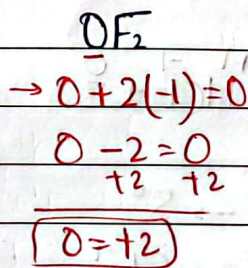 OF₂
→ O + 2(-1) = 0
O - 2 = 0
+2 +2
O = +2